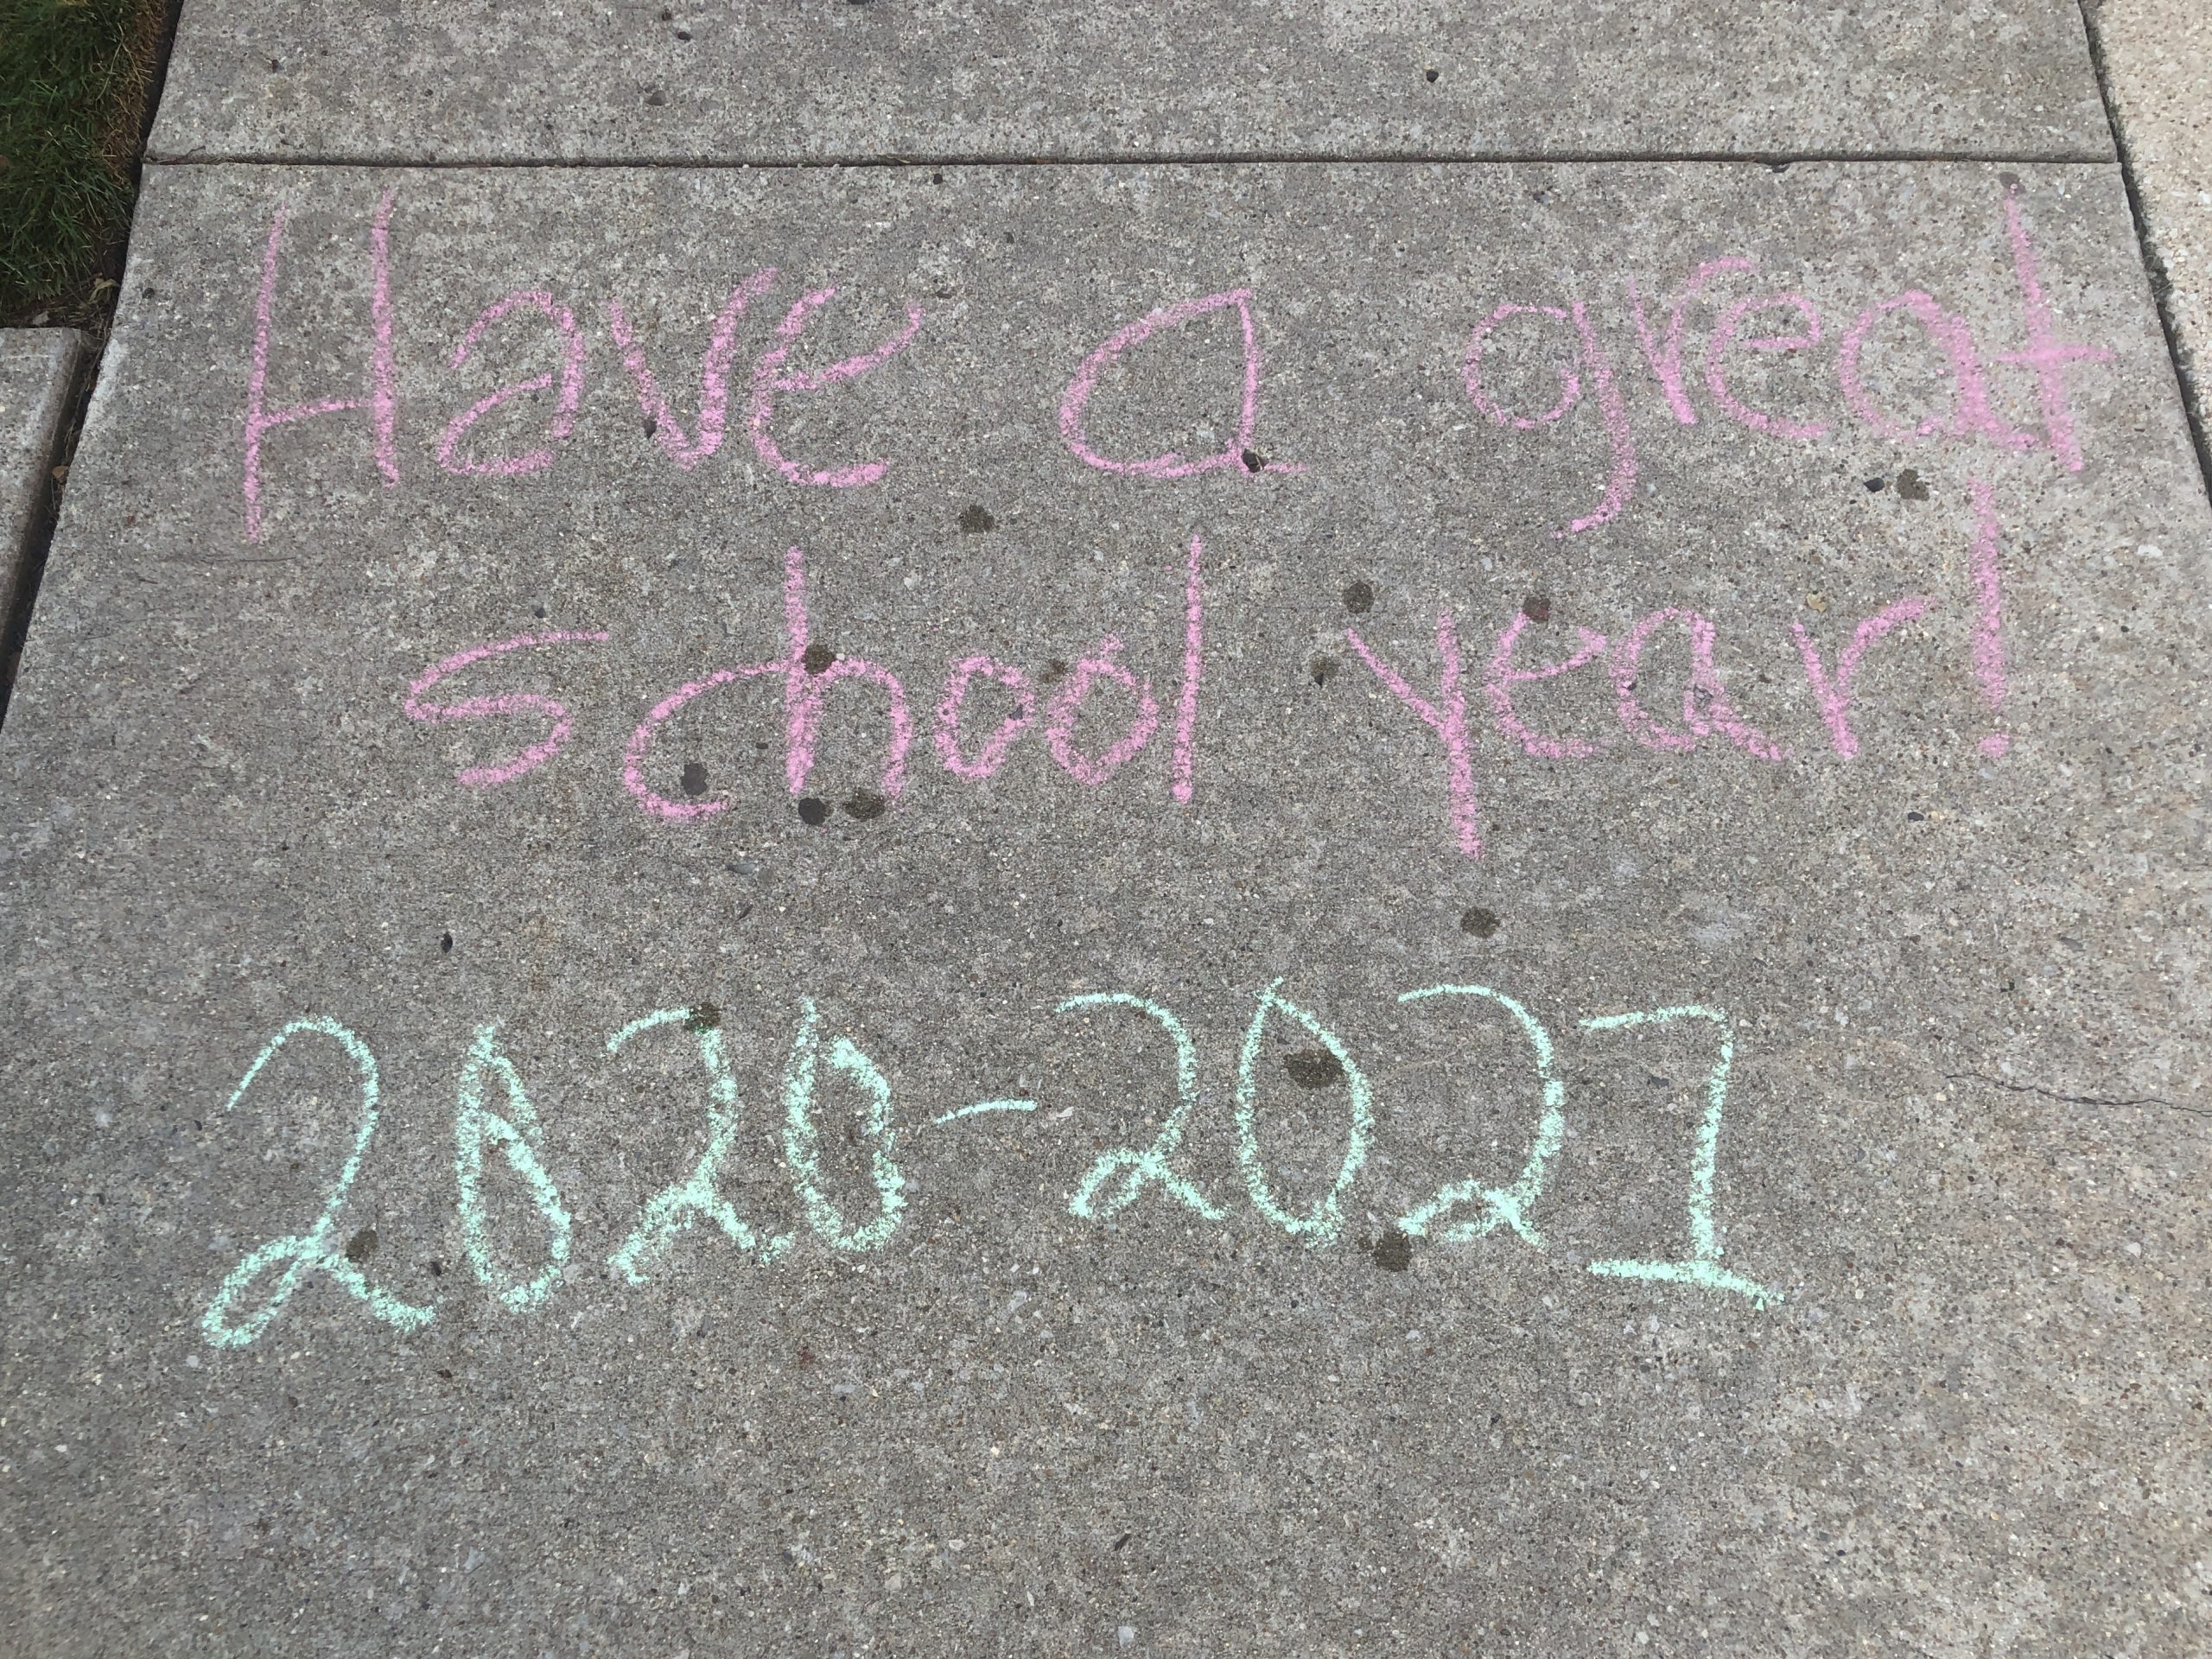 Have a great
school year!
2020-2021